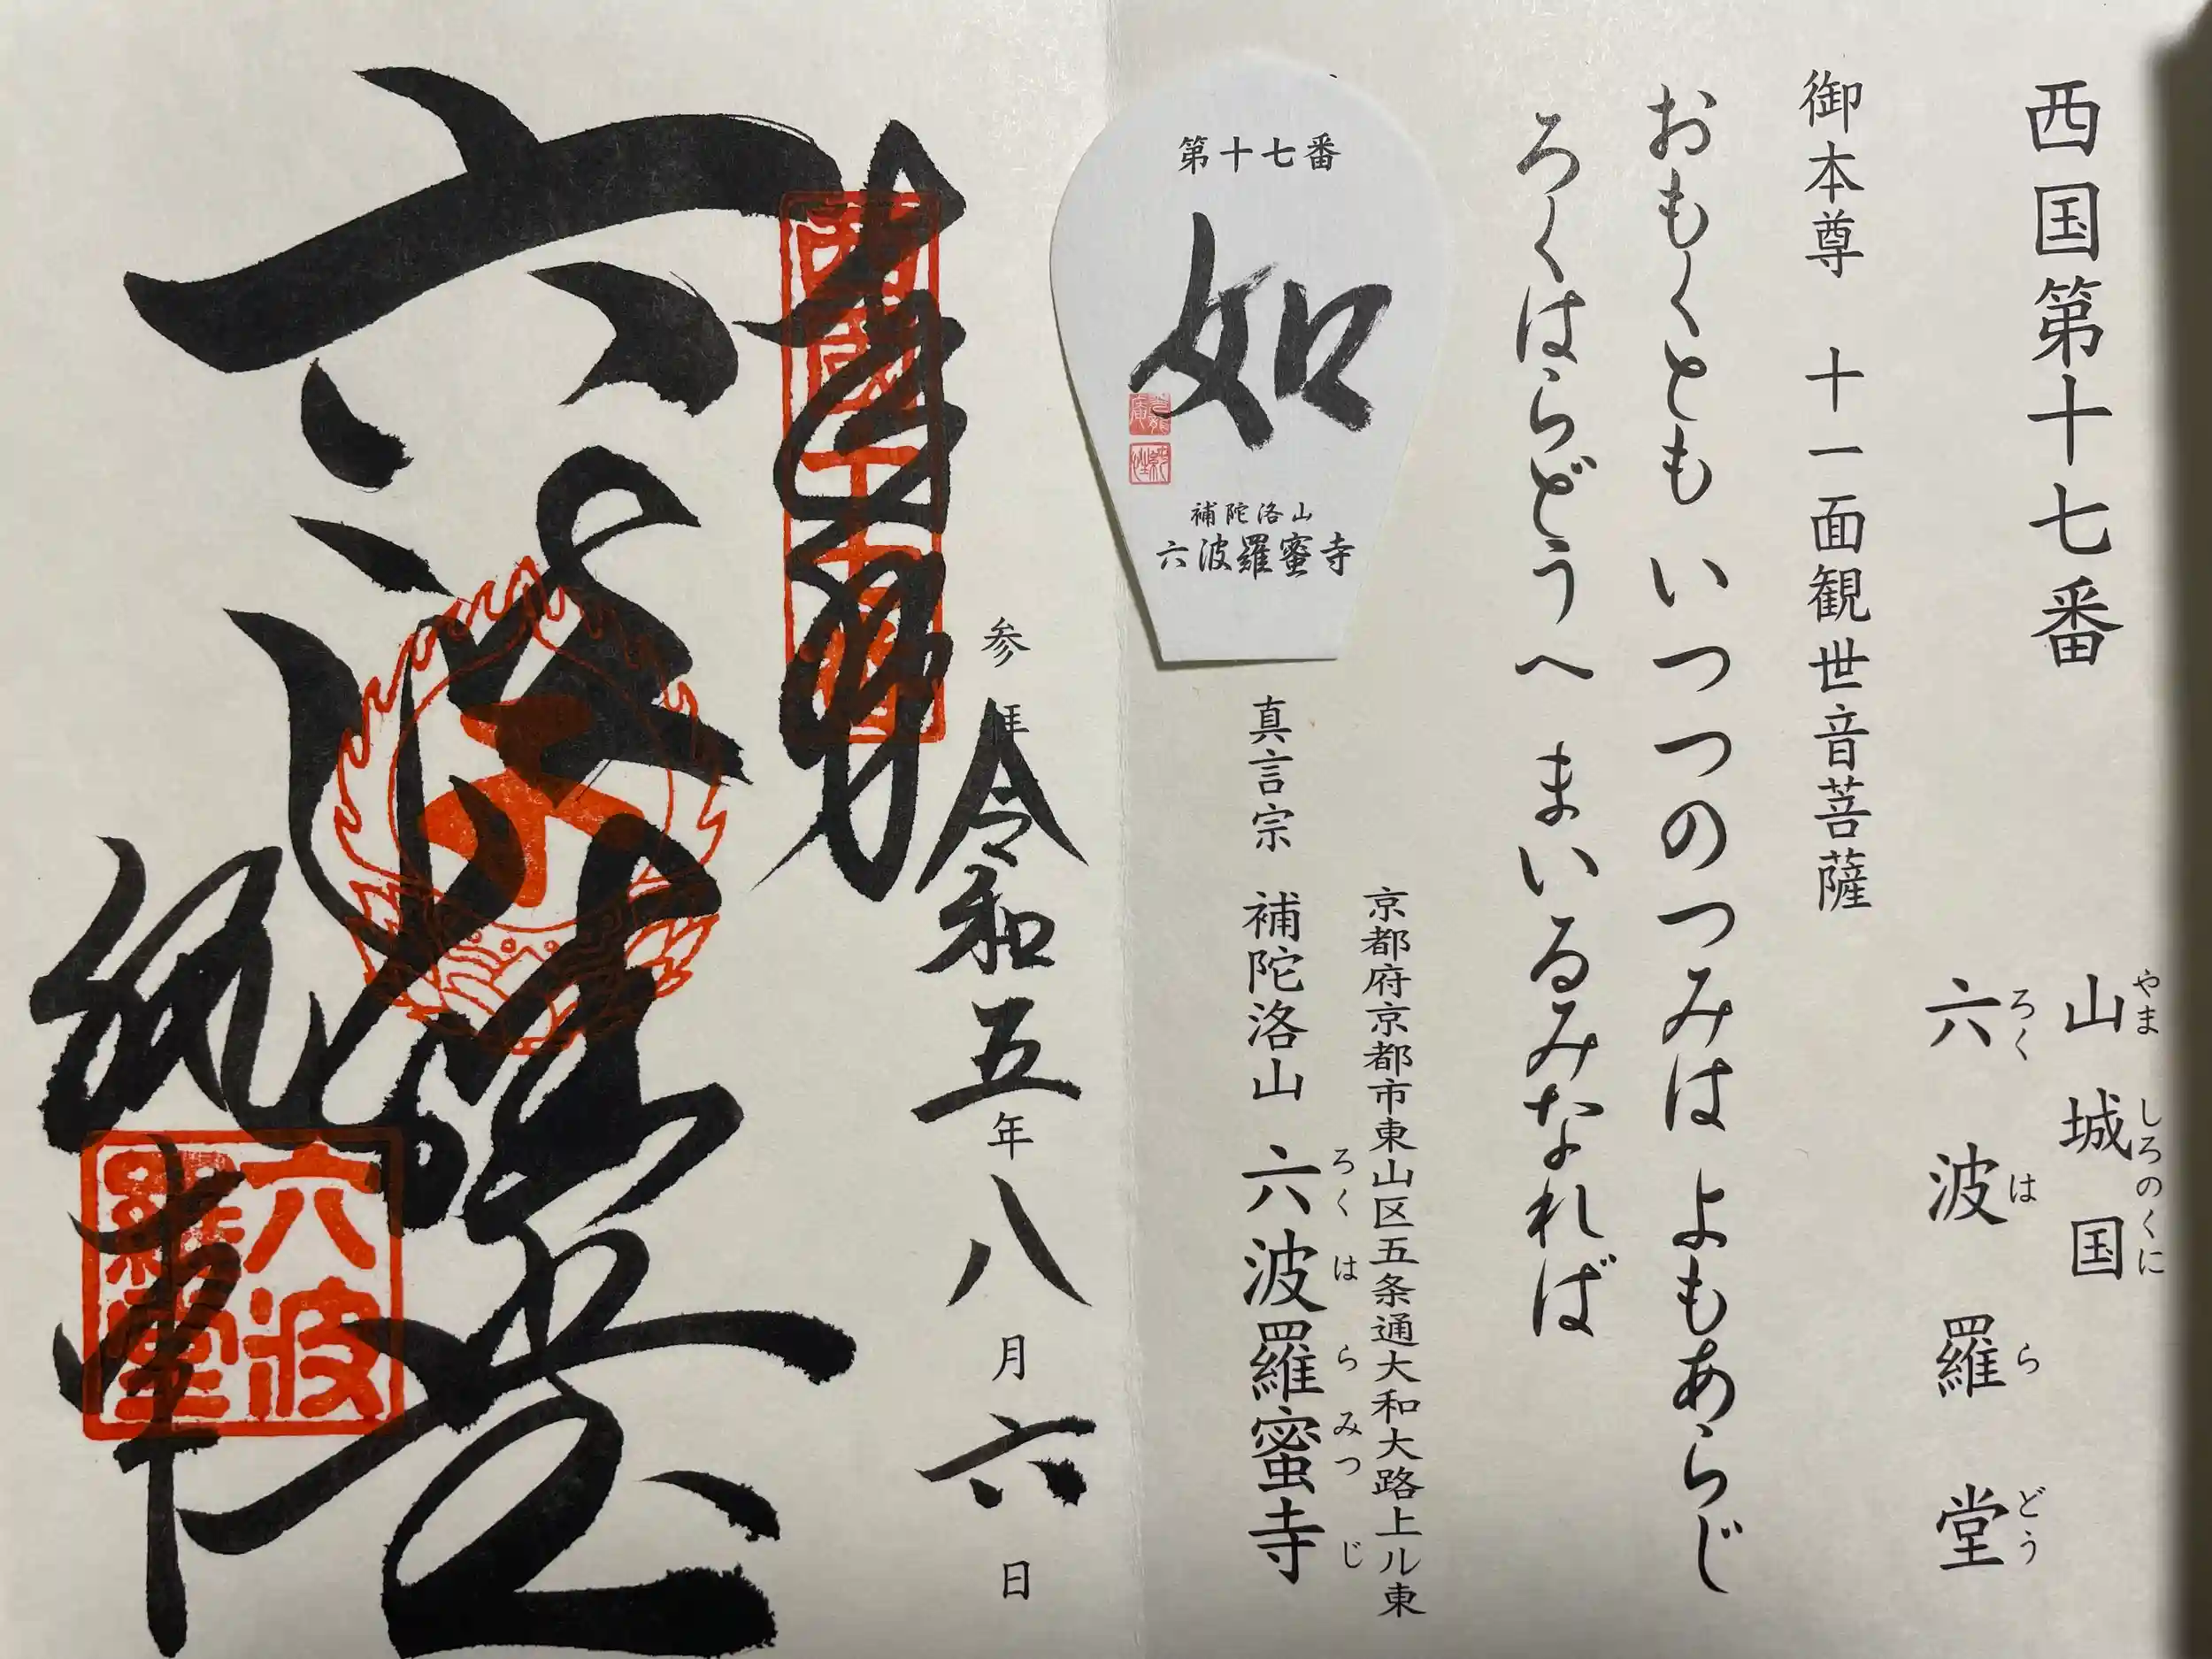 西国第十七番
山城国
やましろのくに
六波羅堂
ろくはらどう
御本尊 十一面観世音菩薩
おもくとも いつつのつみは よもあらじ
ろくはらどうへ まいるみなれば
京都府京都市東山区五条通大和大路上ル東
真言宗 補陀洛山 六波羅蜜寺
ろくはらみつじ
第十七番
如
補陀洛山
六波羅蜜寺
参拝 令和五年八月六日
奉拝
六波羅堂
六波
羅堂